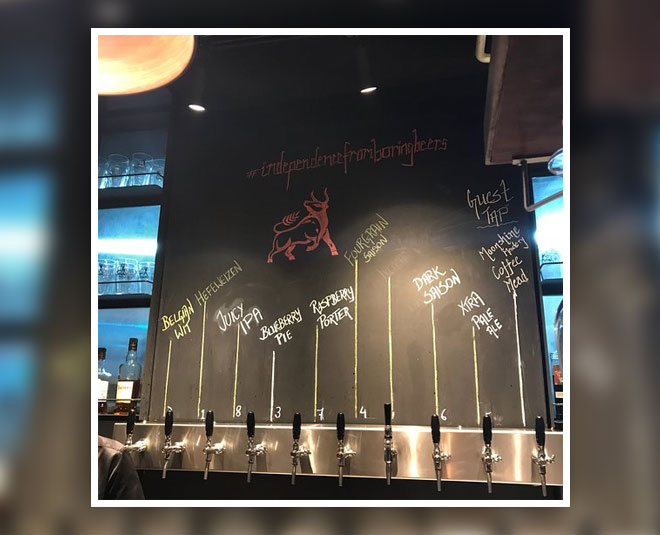 #independencefromboringbeers
BELGIAN
WIT
HEFEWEIZEN
JUICY
IPA
BLUEBERRY
PIE
RASPBERRY
PORTER
FOURGRAIN
SAISON
DARK
SAISON
XTRA
PALE
ALE
Guest
TAP
Moonshine
Meadery
Coffee
Mead
1
8
3
7
4
6